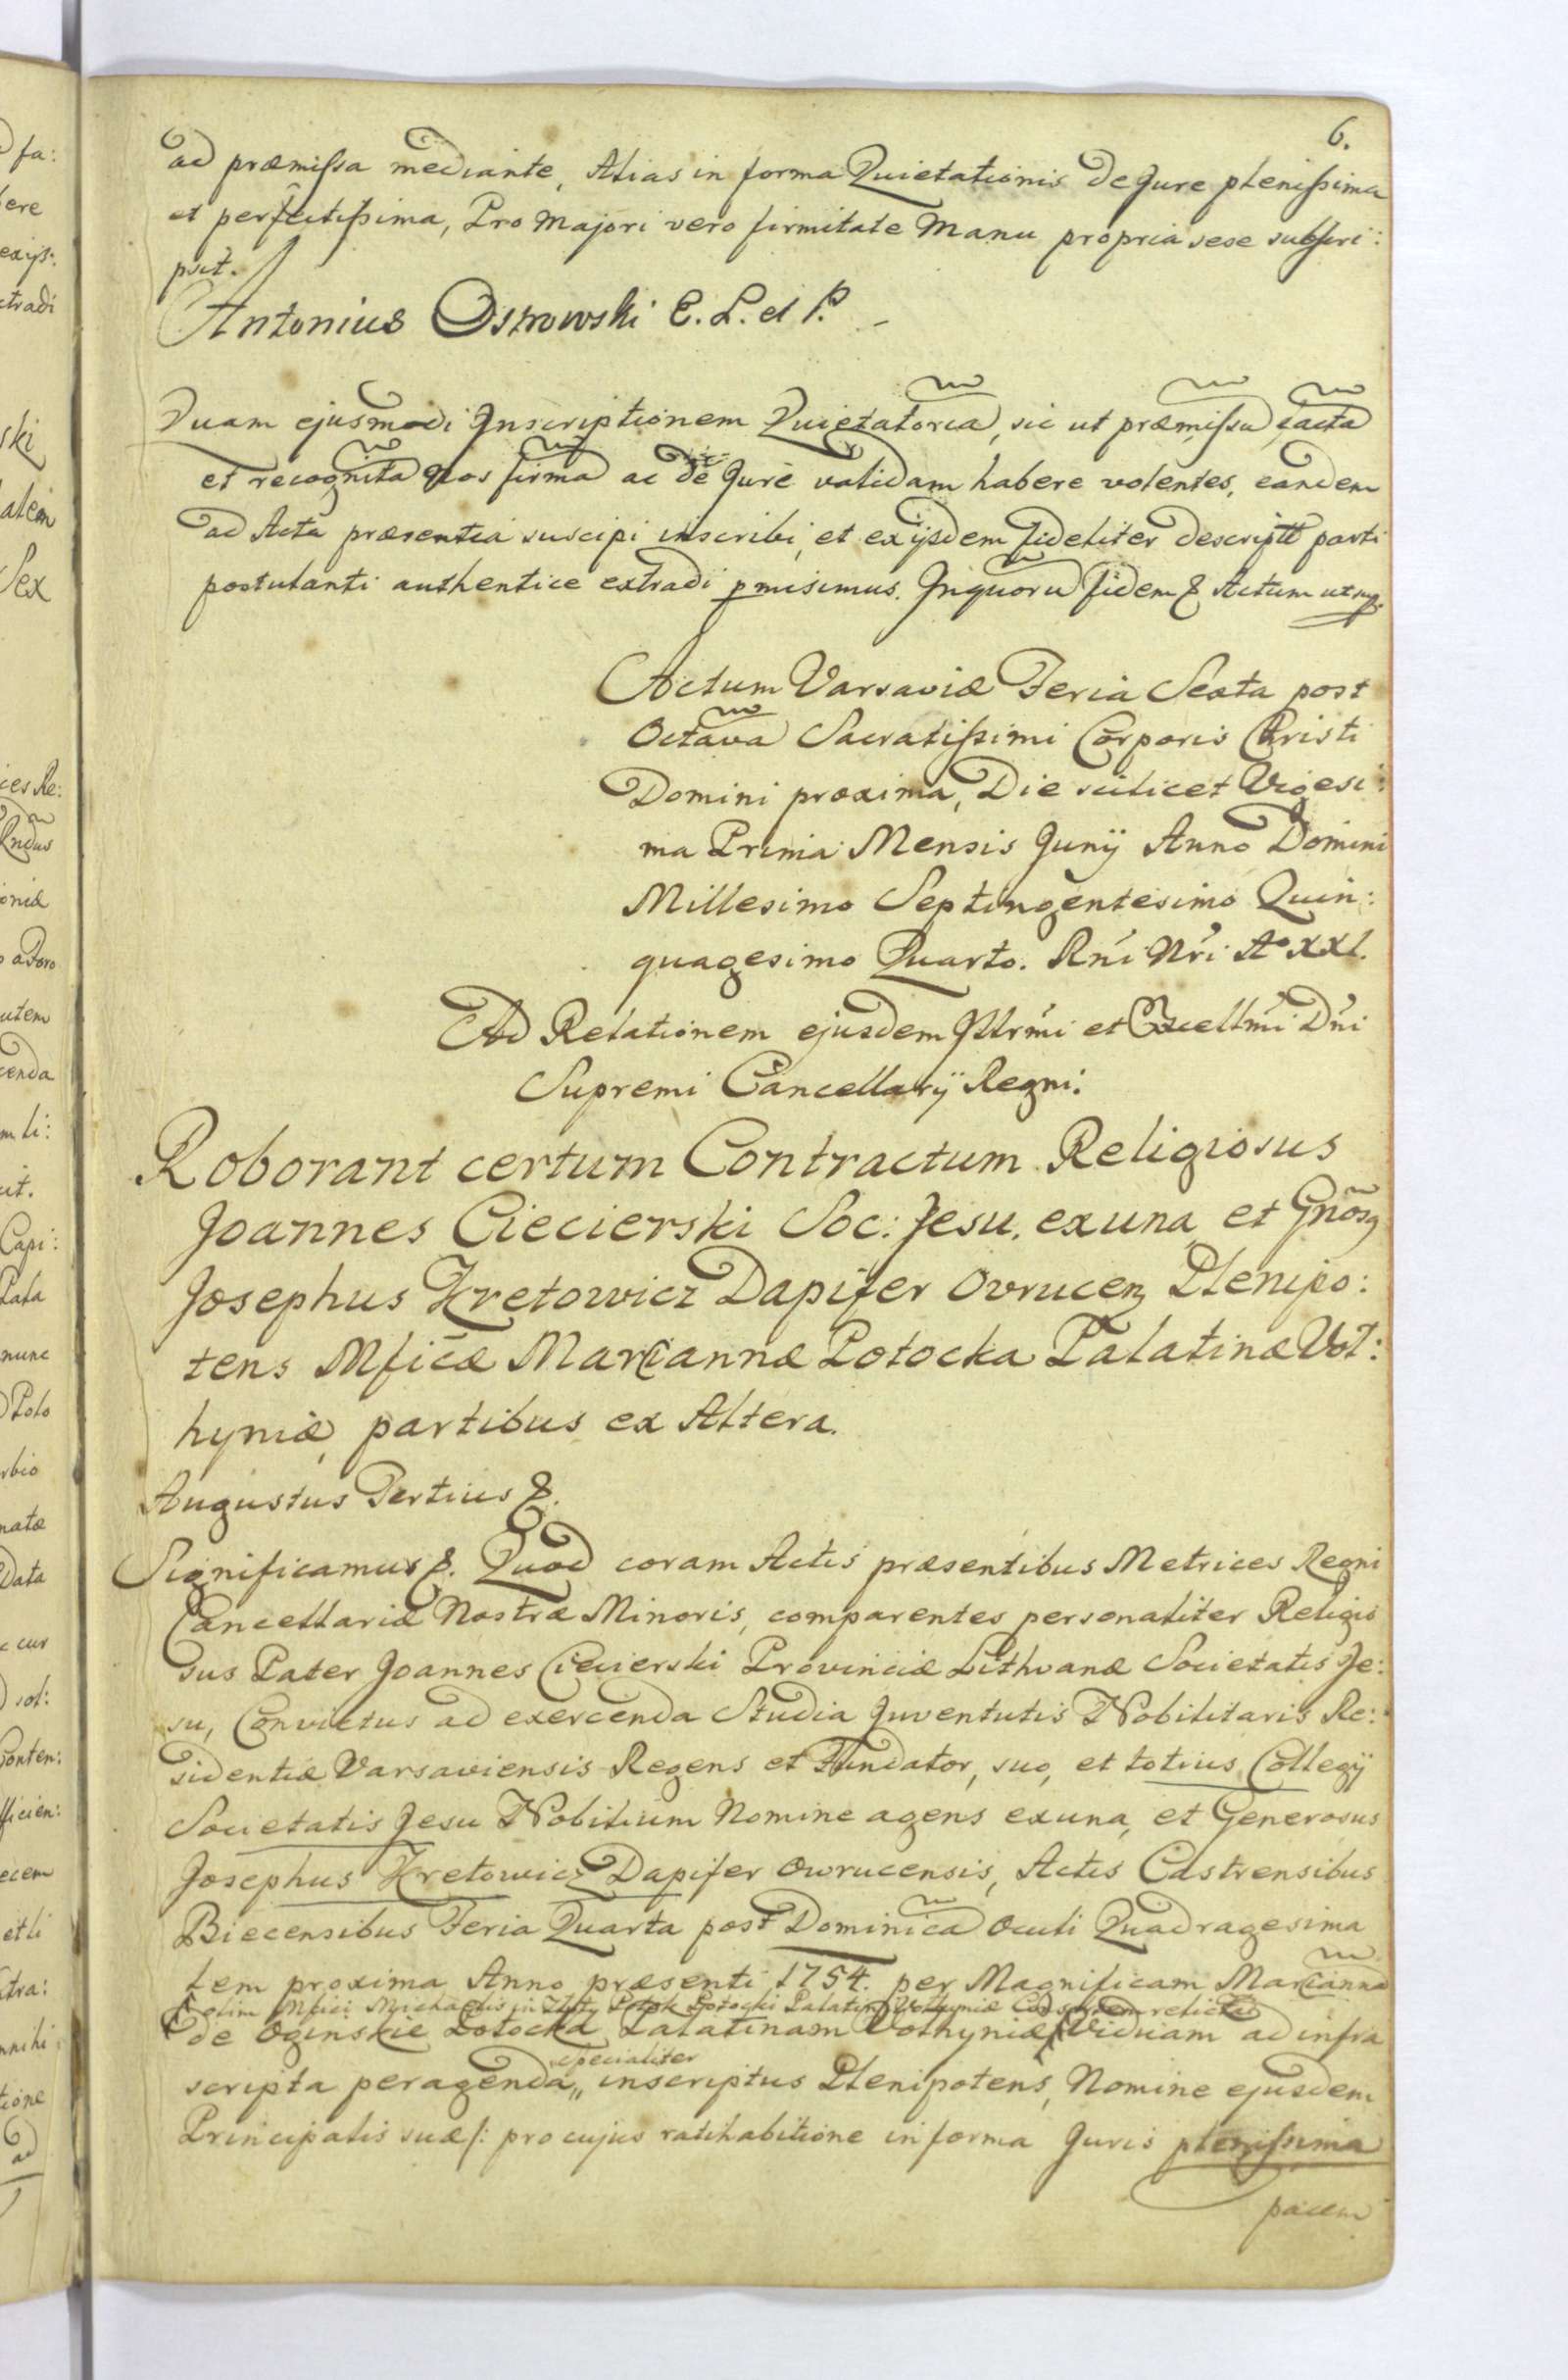 6.
ad præmissa mediante, Alias in forma Quietationis de Jure plenissima
et perfectissima, Pro Majori vero firmitate Manu propria sese subscri:
psit.
Antonius Ostrowski E. L. et P.
Quam ejusmodi Inscriptionem Quietatoria, sic ut præmissu facta
et recognita Nos firma ac de Jure validam habere volentes, eandem
ad Acta præsentia suscipi inscribi, et ex ijsdem fideliter descriptt parti
postulanti authentice extradi pmisimus. In quoru fidem &. Actum ut sup.
Actum Varsaviæ Feria Sexta post
Octava Sacratissimi Corporis Christi
Domini proxima, Die scilicet Vigesi:
ma Prima Mensis Junij Anno Domini
Millesimo Septingentesimo Quin:
quagesimo Quarto. Rni Nri Aº XXI.
Ad Relationem ejusdem Illrmi et Excellmi Dni
Supremi Cancellarij Regni.
Roborant certum Contractum Religiosus
Joannes Ciecierski Soc: Jesu, ex una, et Gnosq
Josephus Kretowicz Dapifer Ovrucen Plenipo:
tens Mficæ Mariannæ Potocka Palatinæ Vol:
hyniæ, partibus ex Altera.
Augustus Tertius &.
Significamus &. Quod coram Actis præsentibus Metrices Regni
Cancellariæ Nostræ Minoris, comparentes personaliter Religio
sus Pater Joannes Ciecierski Provinciæ Lithvanæ Societatis Je:
su, Convictus ad exercenda Studia Juventutis Nobilitaris Re:
sidentiæ Varsaviensis Regens et Fundator, suo, et totius Collegij
Societatis Jesu Nobilium Nomine agens ex una, et Generosus
Josephus Kretowicz Dapifer Owrucensis, Actis Castrensibus
Biecensibus Feria Quarta post Dominica Oculi Quadragesima
lem proxima Anno præsenti 1754. per Magnificam Marianna
olim Mfici Michaelis in Złoty Potok Potocki Palatini Volhyniæ relicta
de Oginskie Potocka Palatinam Volhyniæ Viduam ad infra
specialiter
scripta peragenda,, inscriptus Plenipotens, Nomine ejusdem
Principalis suæ /: pro cujus ratihabitione in forma Juris plenissima
pacem